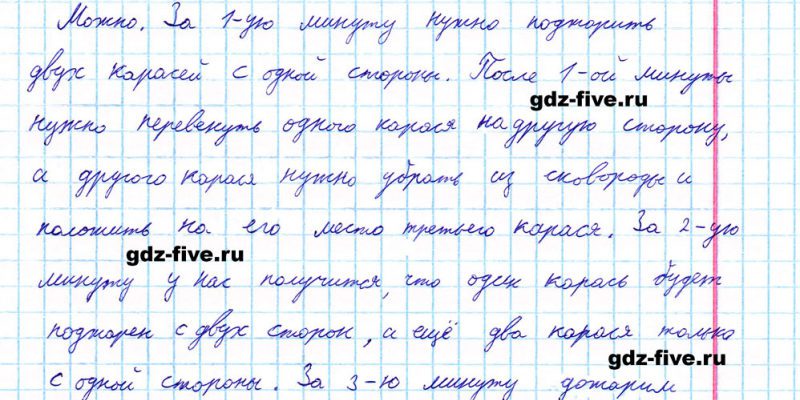 Можно. За 1-ую минуту нужно поджарить
двух карасей с одной стороны. После 1-ой минуты
gdz-five.ru
нужно перевенуть одного карася на другую сторону,
а другого карася нужно убрать из сковороды и
положить на его место третьего карася. За 2-ую
gdz-five.ru
минуту у нас получится, что один карась будет
поджарен с двух сторон, а ещё два карася только
gdz-five.ru
с одной стороны. За 3-ю минуту дожарим